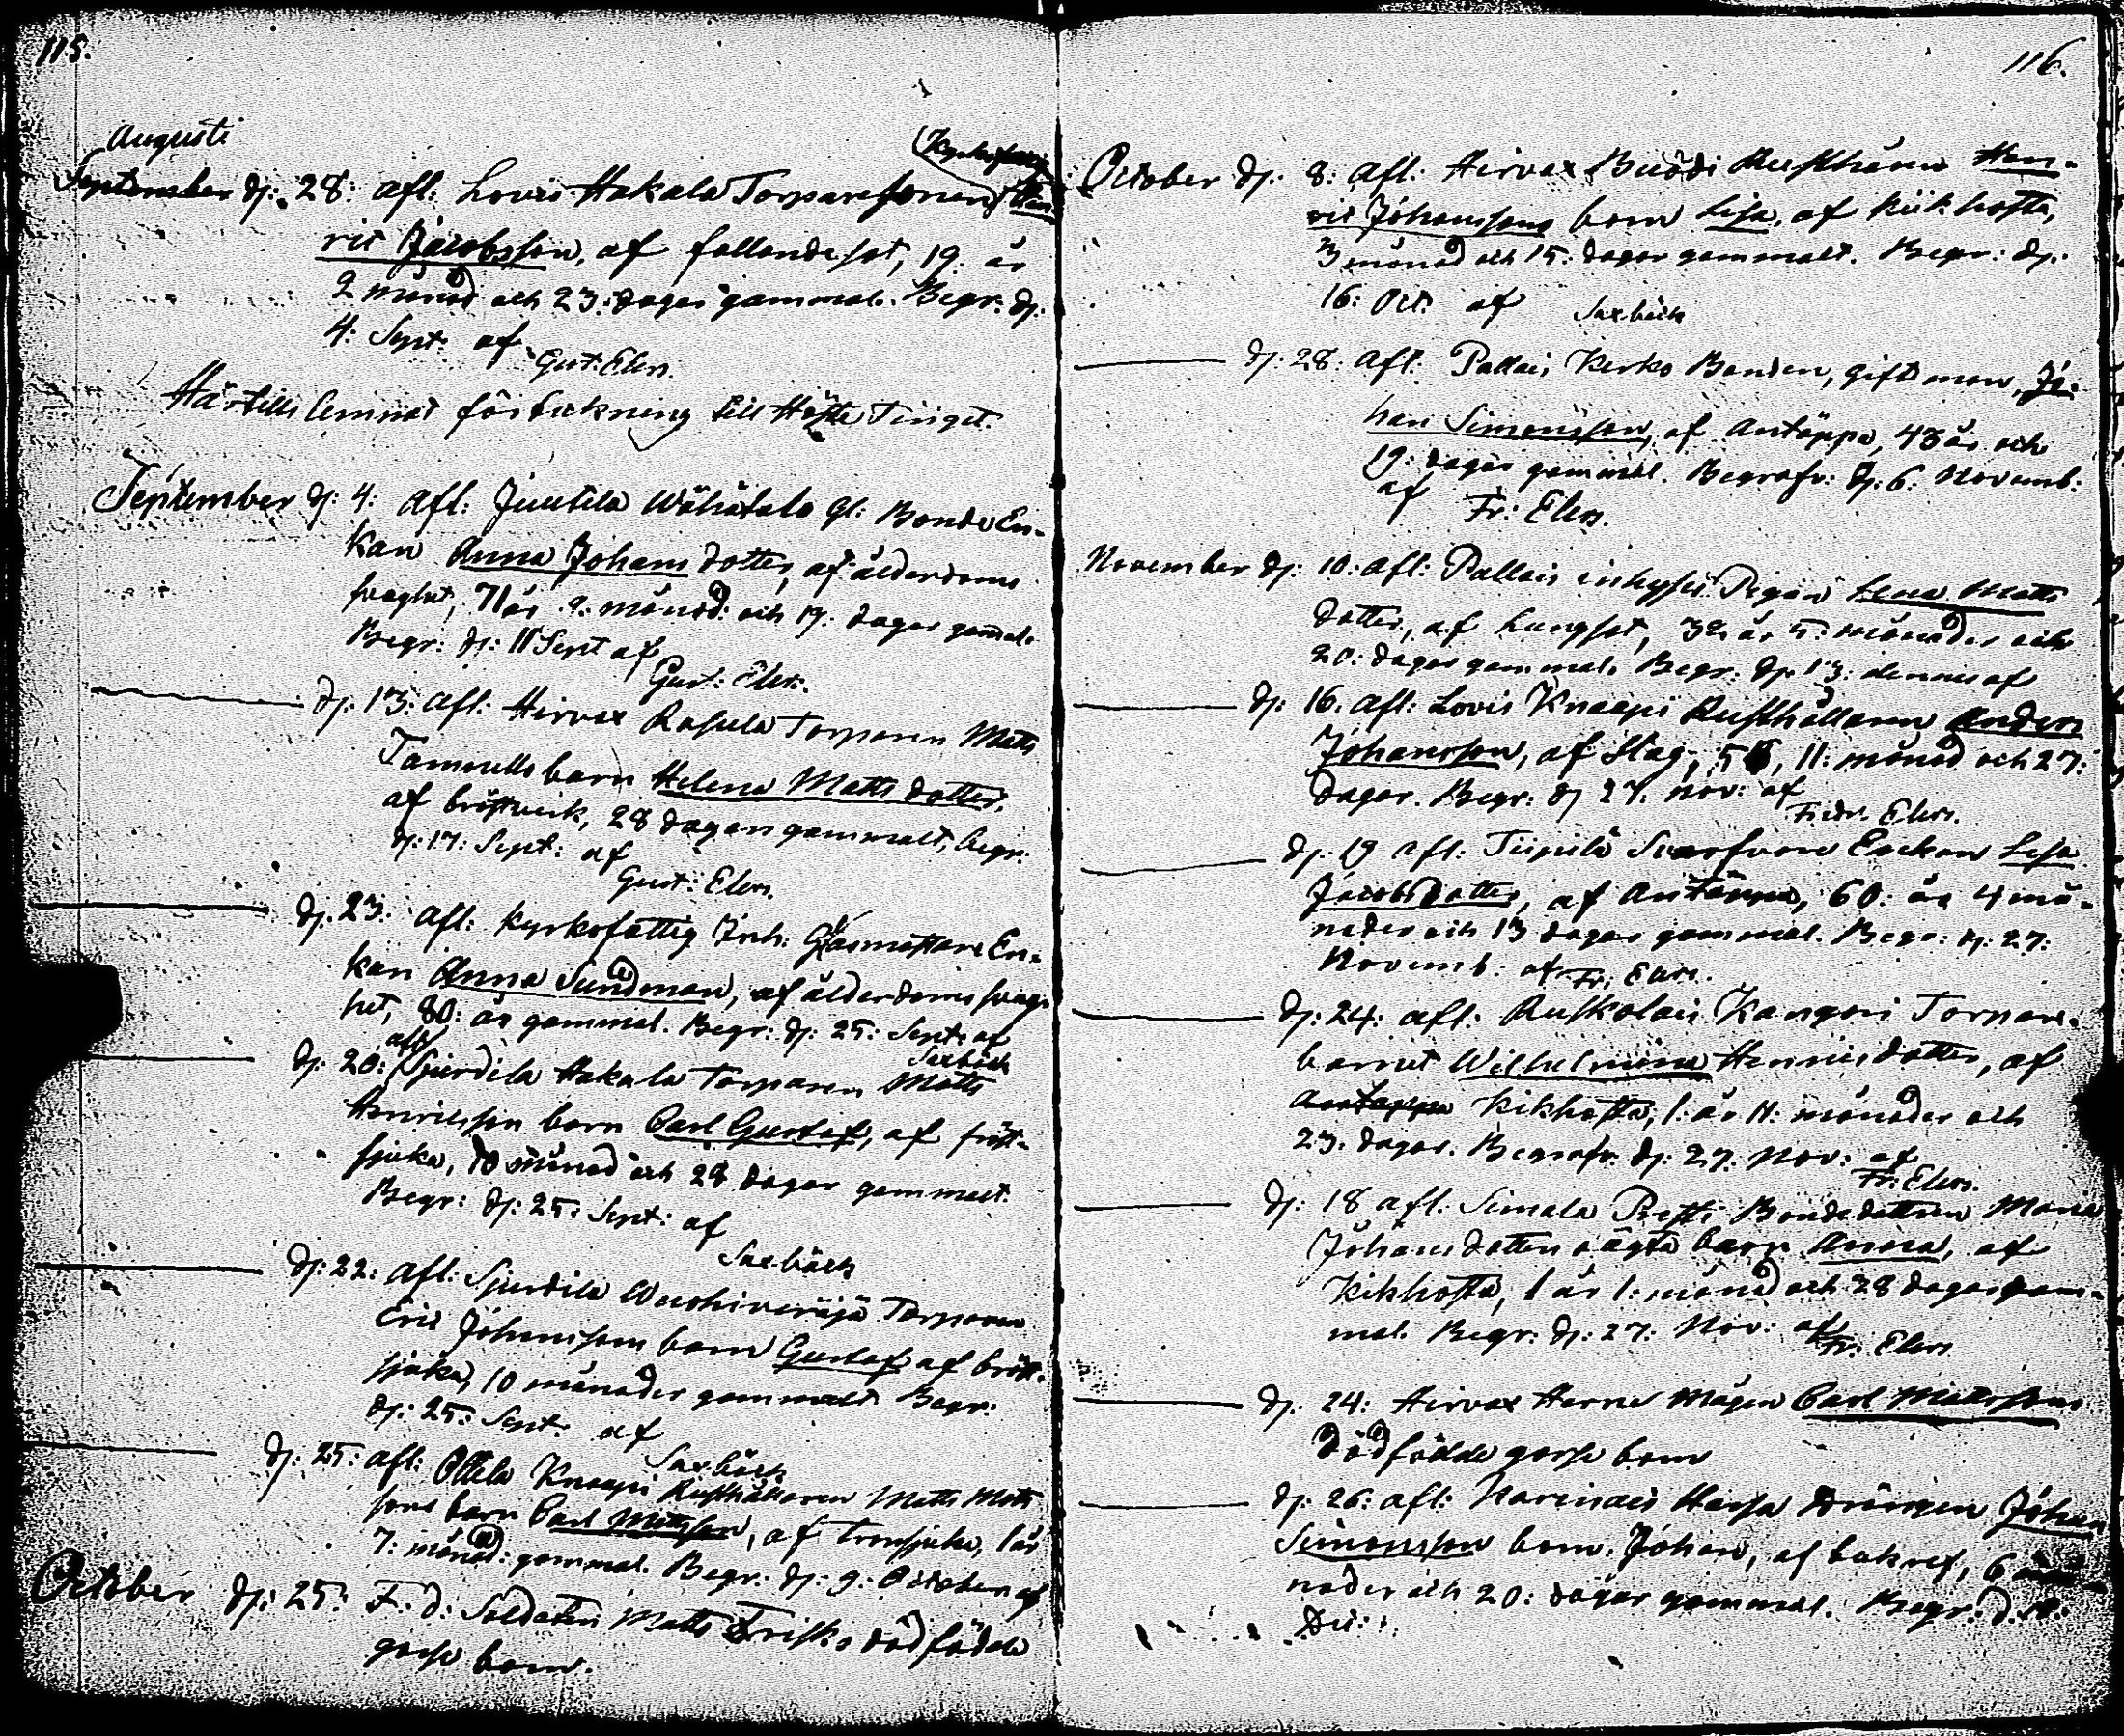 115.
Augusti
September dj. 28: afl: Lovis Hakala Torparesonen Hen-
ric Jacobsson, af fallandesot, 19: år
2 månad och 23: dagar gammal. Begr. dj.
4: Sept: af
Gust: Elers.
Härtills lemnat förtekning till Höste Tinget.
September dj: 4: afl: Juutila Wähätalo gl: Bonde En-
kan Anna Johans dotter, af ålderdoms
svaghet, 71 år 9: månad: och 19: dagar gamal.
Begr: dj: 11 Sept af
Gust: Elers.
dj. 13: afl: Hirvax Rasula Torparen Matts
Tamsells barn Helena Matts dotter,
af bröstverk, 28 dagars gammalt, begr:
dj: 17: Sept: af
Gust: Elers.
dj. 23: afl: kyrkofattig Inh: Glasmästare En-
kan Anna Sundman, af ålderdoms svag-
het, 80: år gammal. Begr: dj: 25: Sept: af
Saxbäck
dj. 20: afl: Sjurdila Hakala Torparen Matts
Henricsson barn Carl Gustaf, af bröst-
sjuka, 10 månad och 28 dagar gammalt.
Begr: dj: 25: Sept: af
Saxbäck
dj: 22: afl: Sjurdila Wuohiniräjä Torparen
Eric Johanssons barn Gustaf af bröst-
sjuka, 10 månader gammalt Begr:
dj: 25: Sept: af
Saxbäck
dj. 25: afl: Ottila Knaapi Rusthållaren Matts Matts
sons barn Carl Mattsson, af bronsjuka, 1 år
7: månad: gammal. Begr: dj: 9: October af
October dj: 25: F. d: Soldaten Matts Frisks dödfödde
gosse barn.
116.
October dj: 8: afl: Hirvax Buödi Rusthånn Hen-
ric Johanssons barn Lisa, af kikhosta,
3 månad och 15: dagar gammalt. Begr: dj:
16: Oct: af Saxbäck
dj. 28: afl: Pallais Kerko Bonden, gift man, Jo-
han Simonsson, af Antäppa, 43 år och
19: dagar gammal. Begrafv: dj: 6: Novemb:
af Fr: Elers.
November dj: 10: afl: Pallais inhyses Pigan Lena Matts
dotter, af Lungsot, 32 år 5: månader och
20: dagar gammal. Begr: dj: 13: dennes af
dj: 16. afl: Lovis Knaapi Rusthållaren Anders
Johansson, af Slag, 11: månad och 27:
dagar. Begr: dj 27: Nov: af
Fredr. Elers.
dj: 19 afl: Tiipilä Enckan Lisa
Jacobsdotter, af Antäppa, 60: år 4 må-
nader och 13 dagar gammal. Begr: dj: 27:
Novemb: af Fr: Elers.
dj: 24: afl: Ruskolais Kangori Torpare-
barnet Wilhelmina Henrics dotter, af
Antäppa kikhosta, 1: år 11: månader och
23. dagar. Begrafv: dj: 27: Nov: af
Fr: Elers.
dj. 18 afl: Simala Prusti Bondedottren Maria
Johans dotters oägta barn Anna, af
kikhosta, 1 år 1: månad och 28 dagar gam-
mal. Begr: dj: 27: Nov: af
Fr: Elers
dj. 24: Hirvax Harne Mågen Carl Matssons
Dödfödde gosse barn
dj: 26: afl: Karinais Hassa Drängen Johan
Simonsson barn. Johan, af bakref, 6 må-
nader och 20: dagar gammal. Begr: d.
Dec: